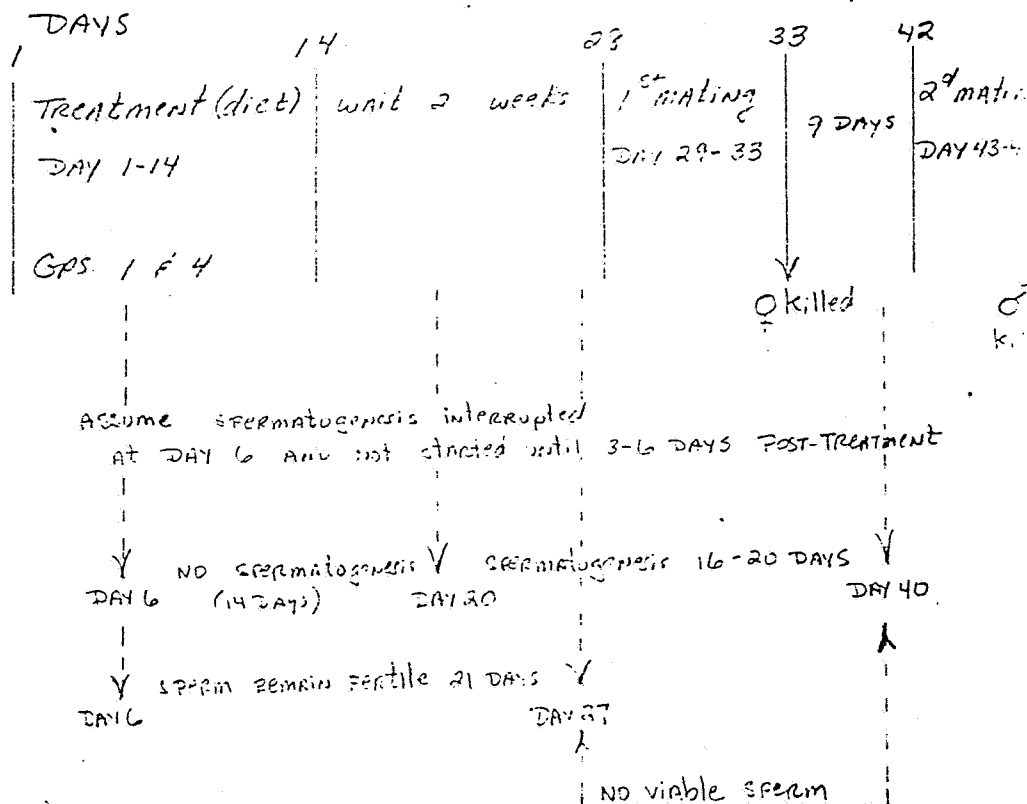 DAYS
1 14 28 33 42
Treatment (diet) wait 2 weeks 1st mating 9 DAYS 2d mati
DAY 1-14 DAY 29-33 DAY 43-
GPS. 1 & 4
♀ killed ♂
k.
Assume spermatogenesis interrupted
at DAY 6 and not started until 3-6 DAYS POST-TREATMENT
NO spermatogenesis spermatogenesis 16-20 DAYS
DAY 6 (14 DAYS) DAY 20 DAY 40
sperm remain fertile 21 DAYS
DAY 6 DAY 27
NO viable sperm